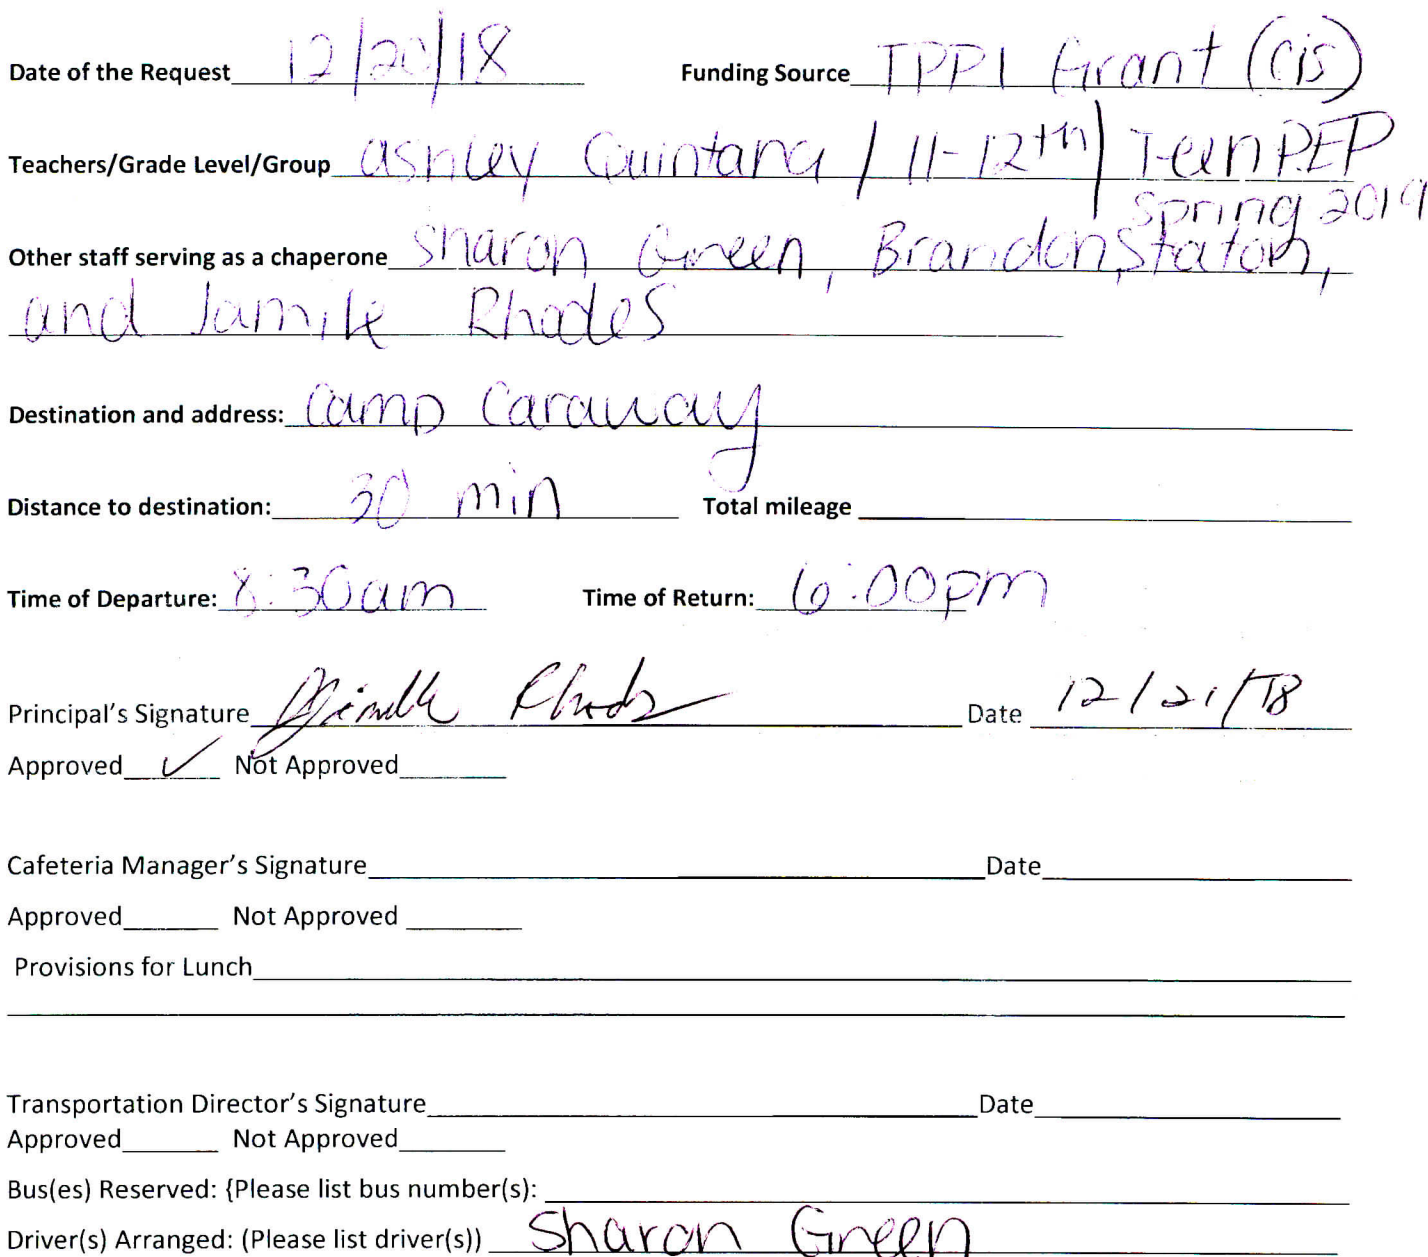 Date of the Request 12/20/18 Funding Source TPPI Grant (cis)
Teachers/Grade Level/Group Ashley Quintana / 11-12th / Teen P.E.P
Spring 2019
Other staff serving as a chaperone Sharon Green, Brandon Staton,
and Jamile Rhodes
Destination and address: Camp Caraway
Distance to destination: 30 min Total mileage
Time of Departure: 8:30am Time of Return: 6:00pm
Principal's Signature Rhodes Date 12/21/18
Approved ✓ Not Approved
Cafeteria Manager's Signature Date
Approved Not Approved
Provisions for Lunch
Transportation Director's Signature Date
Approved Not Approved
Bus(es) Reserved: {Please list bus number(s):
Driver(s) Arranged: (Please list driver(s)) Sharon Green